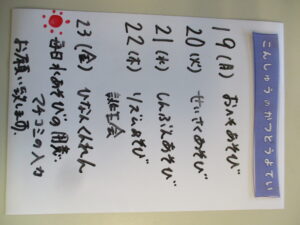 こんしゅうのかつどうよてい
19(月) おへやあそび
20(火) せいさくあそび
21(水) しんぶんあそび
22(木) リズムあそび
誕生会
23(金) ひなんくんれん
毎日水あそびの用意
マルコミの入力
お願い致します。